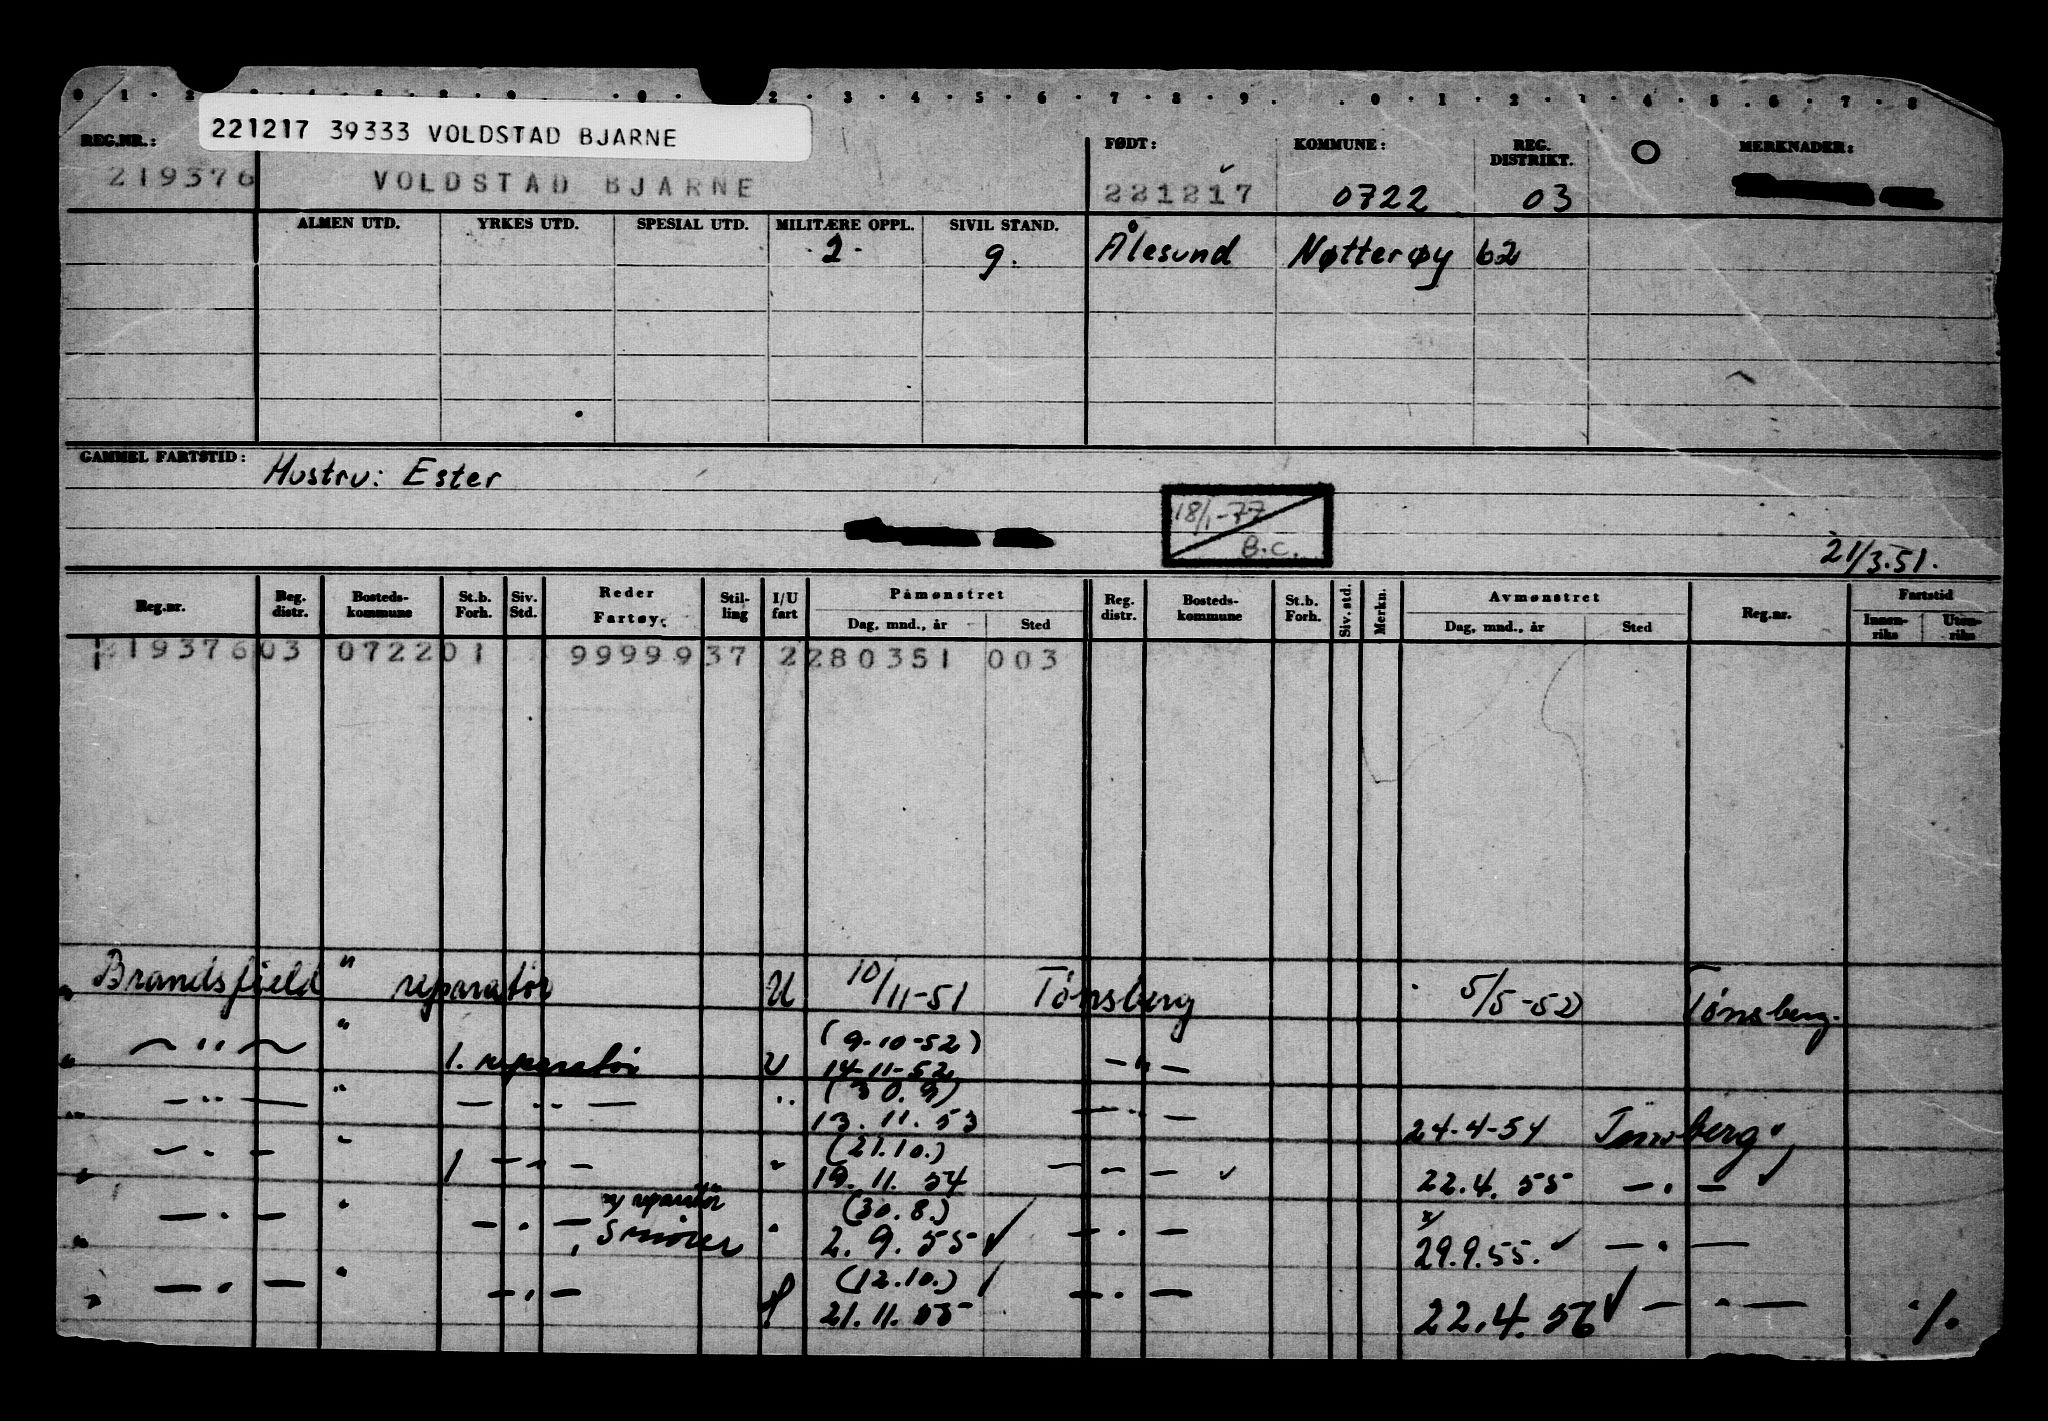 221217 39333 VOLDSTAD BJARNE
REG.NR.: FØDT: KOMMUNE: REG. DISTRIKT. O MERKNADER:
219376 VOLDSTAD BJARNE 221217 0722 03
ALMEN UTD. YRKES UTD. SPESIAL UTD. MILITÆRE OPPL. SIVIL STAND.
2. g. Ålesund Nøtterøy 62
GAMMEL FARTSTID: Hustru: Ester
18/1-77
B.C.
21/3.51.
Reg.nr. Reg. distr. Bosteds-kommune St.b. Forh. Siv. Std. Reder Fartøy. Stil-ling I/U fart Påmønstret Dag, mnd., år Sted Reg. distr. Bosteds-kommune St.b. Forh. Siv.std. Merkn. Avmønstret Dag, mnd., år Sted Reg.nr. Fartstid Innen-riks Uten-riks
219376 03 0722 01 99999 37 2 280351 003
Brandsfjeld " reparatør U 10/11-51 Tønsberg 5/5-52 Tønsberg.
— " — " 1. reparatør U (9-10-52)
14-11-52 — " —
— " — " — " — " (30.9)
13.11.53 — " — 24-4-54 Tønsberg
— " — " 1 — " — " (21.10.)
19.11.54 — " — ✓ 22.4.55 — " — ✓
— " — " — " — reparatør
Smører " (30.8.)
2.9.55 ✓ — " — 29.9.55. ✓ — " —
— " — " — " — (12.10.)
21.11.55 — " — 22.4.56 ✓ — " — ./.